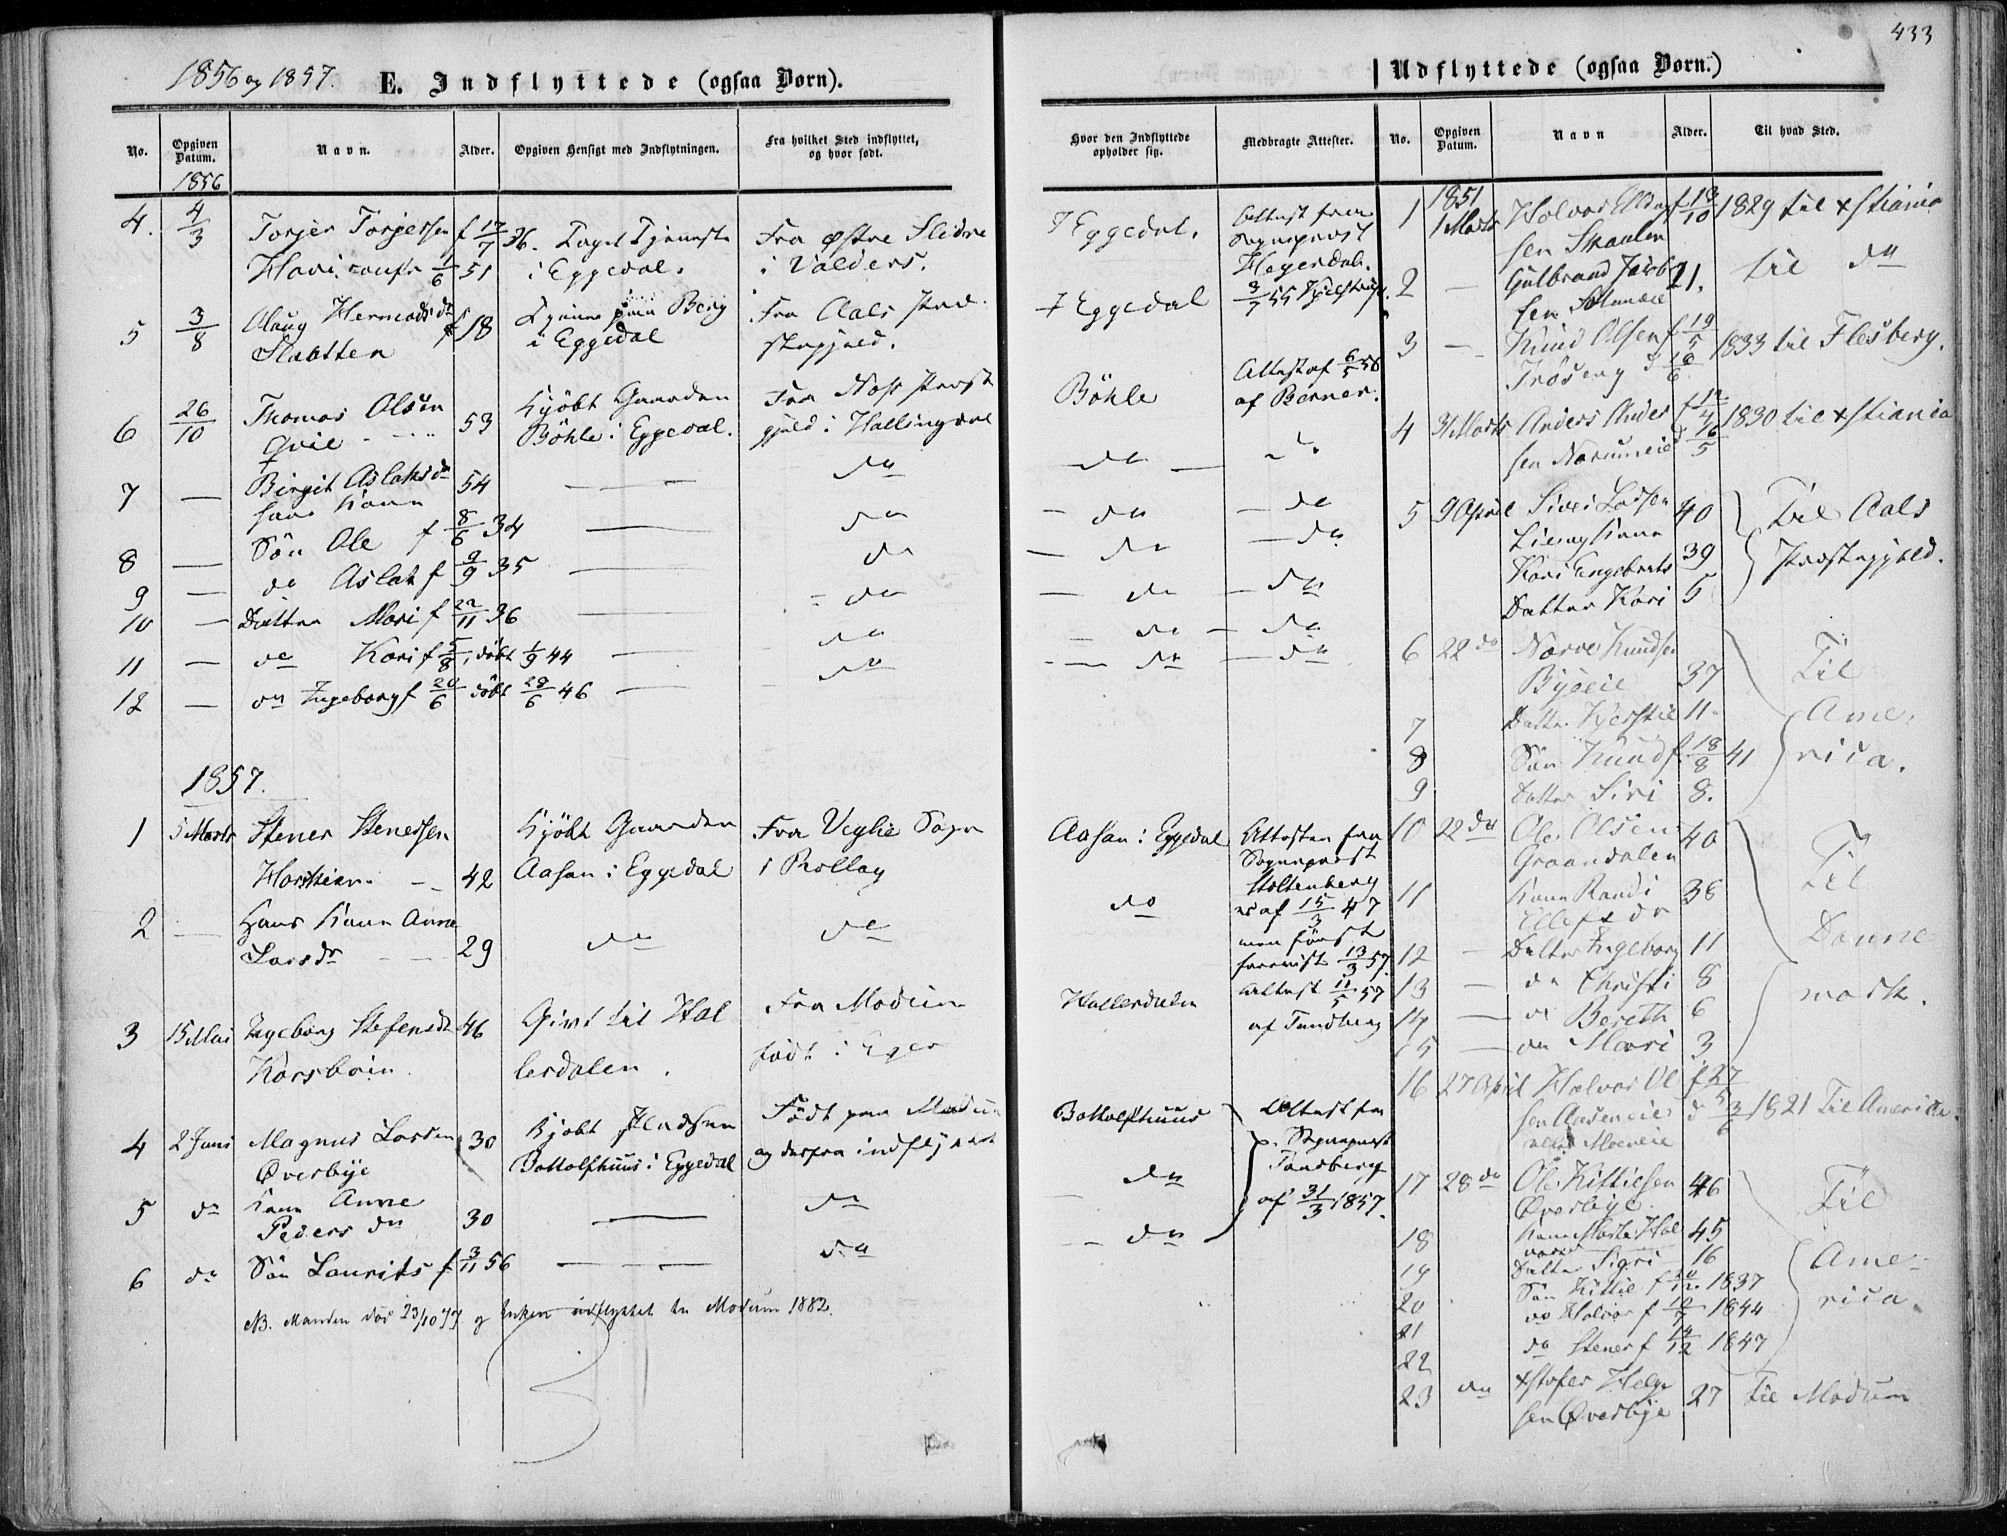 433
1856 og 1857.
E. Indflyttede (ogsaa Børn).
No.
Opgiven Datum.
Navn.
Alder.
Opgiven Hensigt med Indflytningen.
Fra hvilket Sted indflyttet, og hvor født.
Hvor den Indflyttede opholder sig.
Medbragte Attester.
1856
4. 4/3 Torger Torgersen f 17/7 36. Taget Tjeneste Fra Østre Slidre I Eggedal. Attest fra
1/6 51 i Eggedal. i Valders. Sognepræst
5 3/8 Hermods dr f 18 Berg Fra Aals Præ- I Eggedal
Slaatten i Eggedal stegjeld.
6 26/10 Thomas Olsen 53 Kjøbt Gaarden Fra Næss Præste Bøhle Attest af 6/5 56
Qvie Bøhle i Eggedal. gjeld i Hallingdal af Berner.
7 — Birgit Aslaksdr 54 — do do
hans Kone
8 — Søn Ole f 8/6 34 — do do do
9 — do Aslak f 9/9 35 — do do do
10 — Datter Mari f 22/11 36 — do do do
11 — do Kari f 5/8, døbt 1/9 44 — do do do
12 — do Ingeborg f 20/6 døbt 28/6 46 — do do do
1857.
1 5 Marts Stener Stenersen Kjøbt Gaarden Fra Veglie Sogn Aasan i Eggedal Attester fra
42 Aasan i Eggedal i Rollag Sognepræst
2 — Hans Kone Anne do do do Stoltenberg
Larsdr 29 af 15/3 47
men først
13/3 57.
3 15 Mai Ingeborg Stefensdr 46 Givt til Hal Fra Modum Hallerdalen Attest 11/5 57
Korsbøin lerdalen. født i Eger af Tandberg
4 2 Juni Magnus Larsen 30 Kjøbt Født paa Modum Bottolfhuus Attest fra
Øverbye Bottolfhuus i Eggedal og derfra indflyttet Sognepræst
5 do Kone Anne — do do Tandberg
Peders dr 30 af 31/3 1857.
6 do Søn Laurits f 3/11 56 — do do
NB. Manden død 23/10 77 og Enken udflyttet til Modum 1882.
Udflyttede (ogsaa Børn.)
No.
Opgiven Datum.
Navn
Alder.
Til hvad Sted.
1851
1 1 Marts Halvor f 18/10 1829 til Xstiania
sen Skaalen
2 — Gulbrand Jacob 21. til do
sen
3 — Knud Olsen f 19/5 1833 til Flesberg.
Trøseng d 16/6
4 31 Marts Anders Anders f 12/4 1830 til Xstiania
sen Narumeie d 16/5
5 9 April Siver Larsen 40 Til Aals
Kone Præstegjeld.
Kari Engebrets 39
Datter Kari 5
6 22 do Narve Knudsen Til
Byeeie 37
7 Datter Kjerstie 11 Ame-
8 Søn Knud f. 18/8 41 rica.
9 Datter Siri 8.
10 22 do Ole Olsen 40 Til
Graandalen
11 Kone Randi 38
Ellefs dr
12 — Datter Ingeborg 11 Danne
13 — do Christi 8
14 — do Bereth 6 mark.
15 — do Mari 3
16 27 April Halvor Ol f 27/5 1821 Til America.
sen Aaseneie d 3/6
Moeneie
17 28 do Ole Kittilsen 46 Til
Øverbye
18 Kone Marte Hal 45
vors
19 Datter Sigri 16 Ame-
20 Søn Kittil f 20/12 1837
21 do Halvor f 12/7 1844 rica.
22 do Stener f 14/12 1847
23 do Xstofer Helge 27 til Modum
sen Øverbye